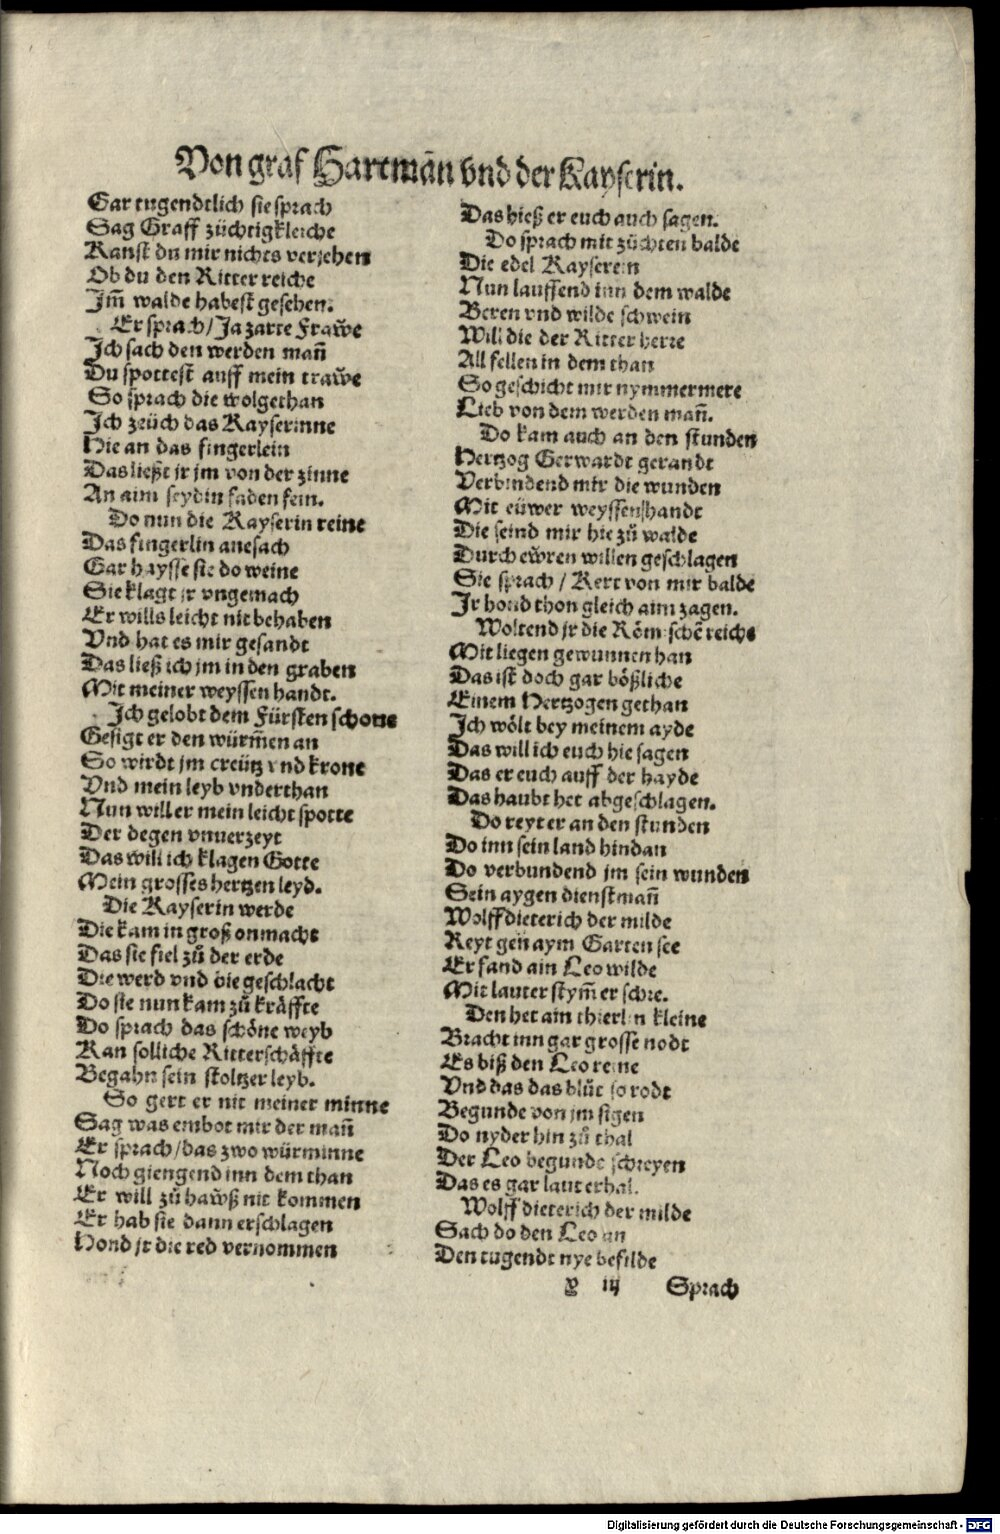 Von graf Hartmãn vnd der Kayserin.
Gar tugendtlich sie sprach
Sag Graff züchtigkleiche
Kanst du mir nichts verjehen
Ob du den Ritter reiche
Jm̃ walde habest gesehen.
Er sprach/Ja zarte Fraẅe
Jch sach den werden mañ
Du spottest auff mein traẅe
So sprach die wolgethan
Jch zeüch das Kayserinne
Hie an das fingerlein
Das ließt jr jm von der zinne
An aim seydin faden fein.
Do nun die Kayserin reine
Das fingerlin anesach
Gar haysse sie do weine
Sie klagt jr vngemach
Er wills leicht nit behaben
Vnd hat es mir gesandt
Das ließ ich jm in den graben
Mit meiner weyssen handt.
Jch gelobt dem Fürsten schone
Gesigt er den würm̃en an
So wirdt jm creütz vnd krone
Vnd mein leyb vnderthan
Nun will er mein leicht spotte
Der degen vnuerzeyt
Das will ich klagen Gotte
Mein grosses hertzen leyd.
Die Kayserin werde
Die kam in groß onmacht
Das sie fiel zů der erde
Die werd vnd die geschlacht
Do sie nun kam zů kräffte
Do sprach das schöne weyb
Kan solliche Ritterschäffte
Begahn sein stoltzer leyb.
So gert er nit meiner minne
Sag was embot mir der mañ
Er sprach/das zwo würminne
Noch giengend inn dem than
Er will zů haẅß nit kommen
Er hab sie dann erschlagen
Hond jr die red vernommen
Das hieß er euch auch sagen.
Do sprach mit züchten balde
Die edel Kayserein
Nun lauffend inn dem walde
Beren vnd wilde schwein
Will die der Ritter herre
All fellen in dem than
So geschicht mir nymmermere
Lieb von dem werden mañ.
Do kam auch an den stunden
Hertzog Gerwardt gerandt
Verbindend mir die wunden
Mit eüwer weyssenshandt
Die seind mir hie zů walde
Durch eẅren willen geschlagen
Sie sprach / Kert von mir balde
Jr hond thon gleich aim zagen.
Woltend jr die Römischẽ reichs
Mit liegen gewunnen han
Das ist doch gar bößliche
Einem Hertzogen gethan
Jch wölt bey meinem ayde
Das will ich euch hie sagen
Das er euch auff der hayde
Das haubt het abgeschlagen.
Do reyt er an den stunden
Do inn sein land hindan
Do verbundend jm sein wunden
Sein aygen dienstmañ
Wolffdieterich der milde
Reyt gen aym Garten see
Er fand ain Leo wilde
Mit lauter stym̃ er schre.
Den het ain thierlin kleine
Bracht inn gar grosse nodt
Es biß den Leo reine
Vnd das das blůt so rodt
Begunde von jm sigen
Do nyder hin zů thal
Der Leo begunde schreyen
Das es gar laut erhal.
Wolff dieterich der milde
Sach do den Leo an
Den tugendt nye befilde
iij Sprach
Digitalisierung gefördert durch die Deutsche Forschungsgemeinschaft - DFG